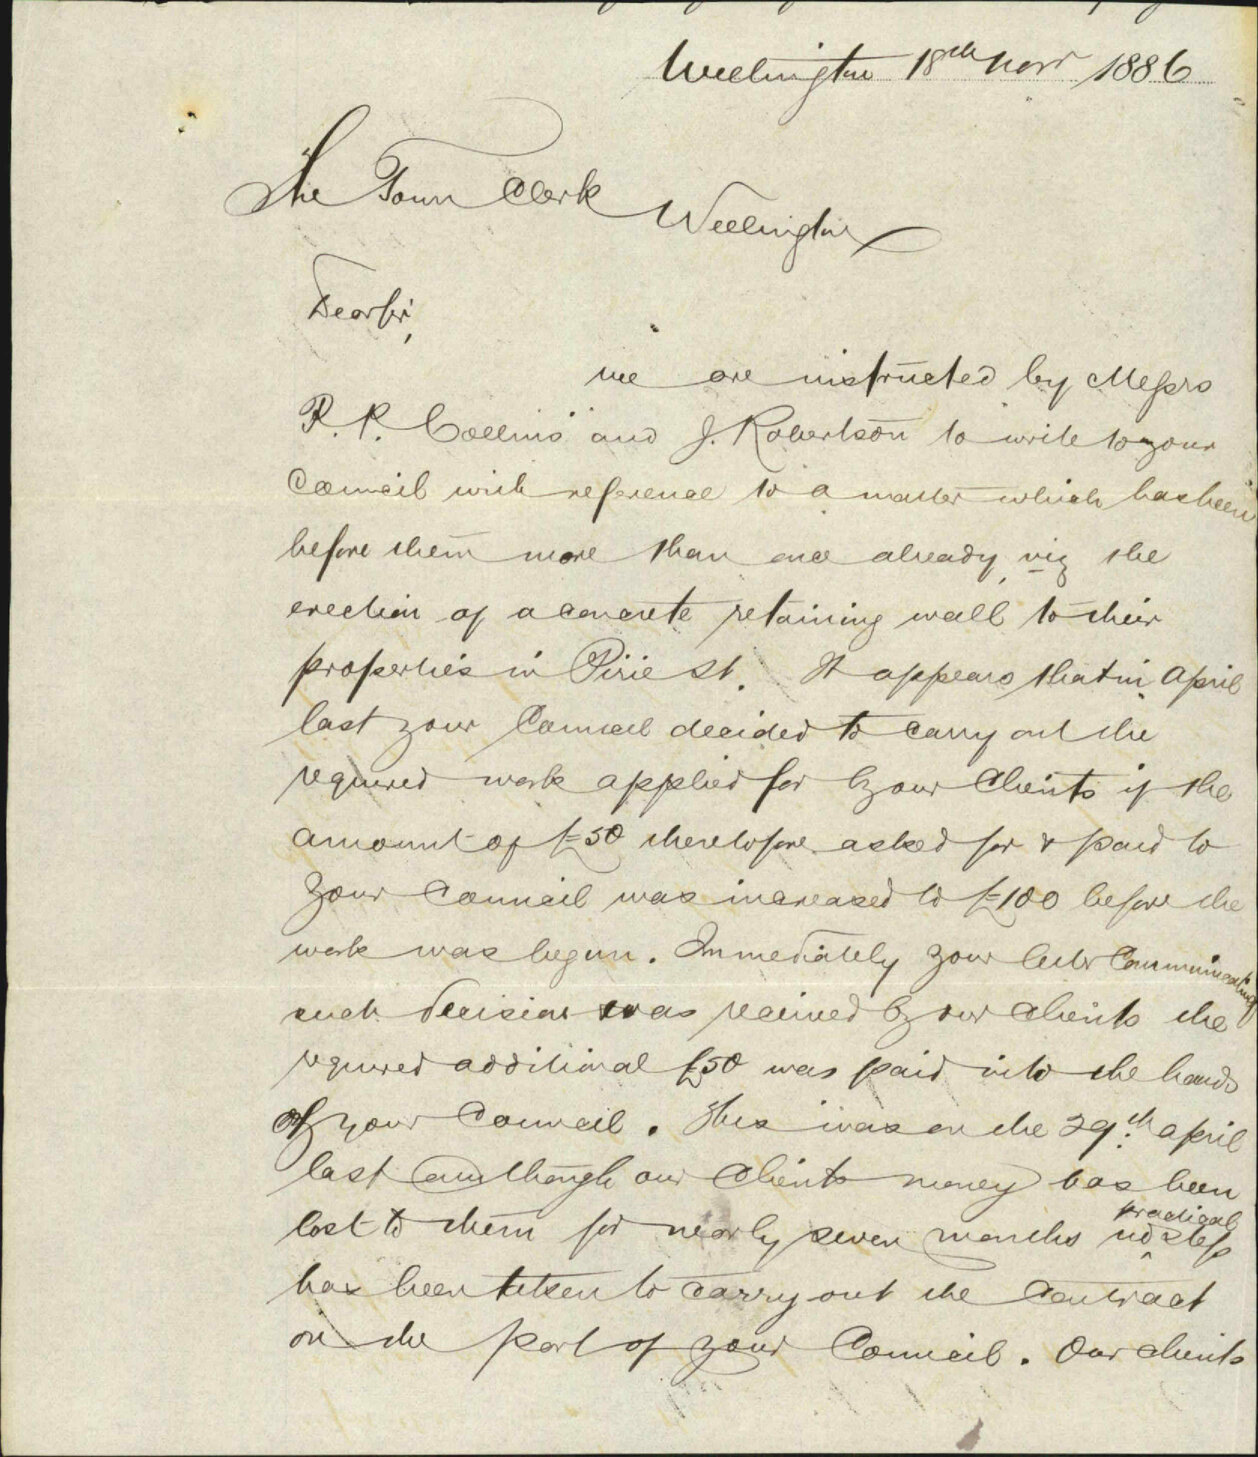 Wellington 18th Novr 1886
The Town Clerk
Wellington
Dear Sir,
We are instructed by Messrs
R. P. Collins and J. Robertson to write to your
Council with reference to a matter which has been
before them more than once already, viz the
erection of a concrete retaining wall to their
properties in Pirie St. It appears that in April
last your Council decided to carry out the
required work applied for by our Clients if the
amount of £50 theretofore asked for & paid to
your Council was increased to £100 before the
work was begun. Immediately your letter Communicating
such decision was received by our Clients the
required additional £50 was paid into the hands
of your Council. This was on the 29th April
last and though our Clients money has been
lost to them for nearly seven months no practical step
has been taken to carry out the Contract
on the part of your Council. Our clients